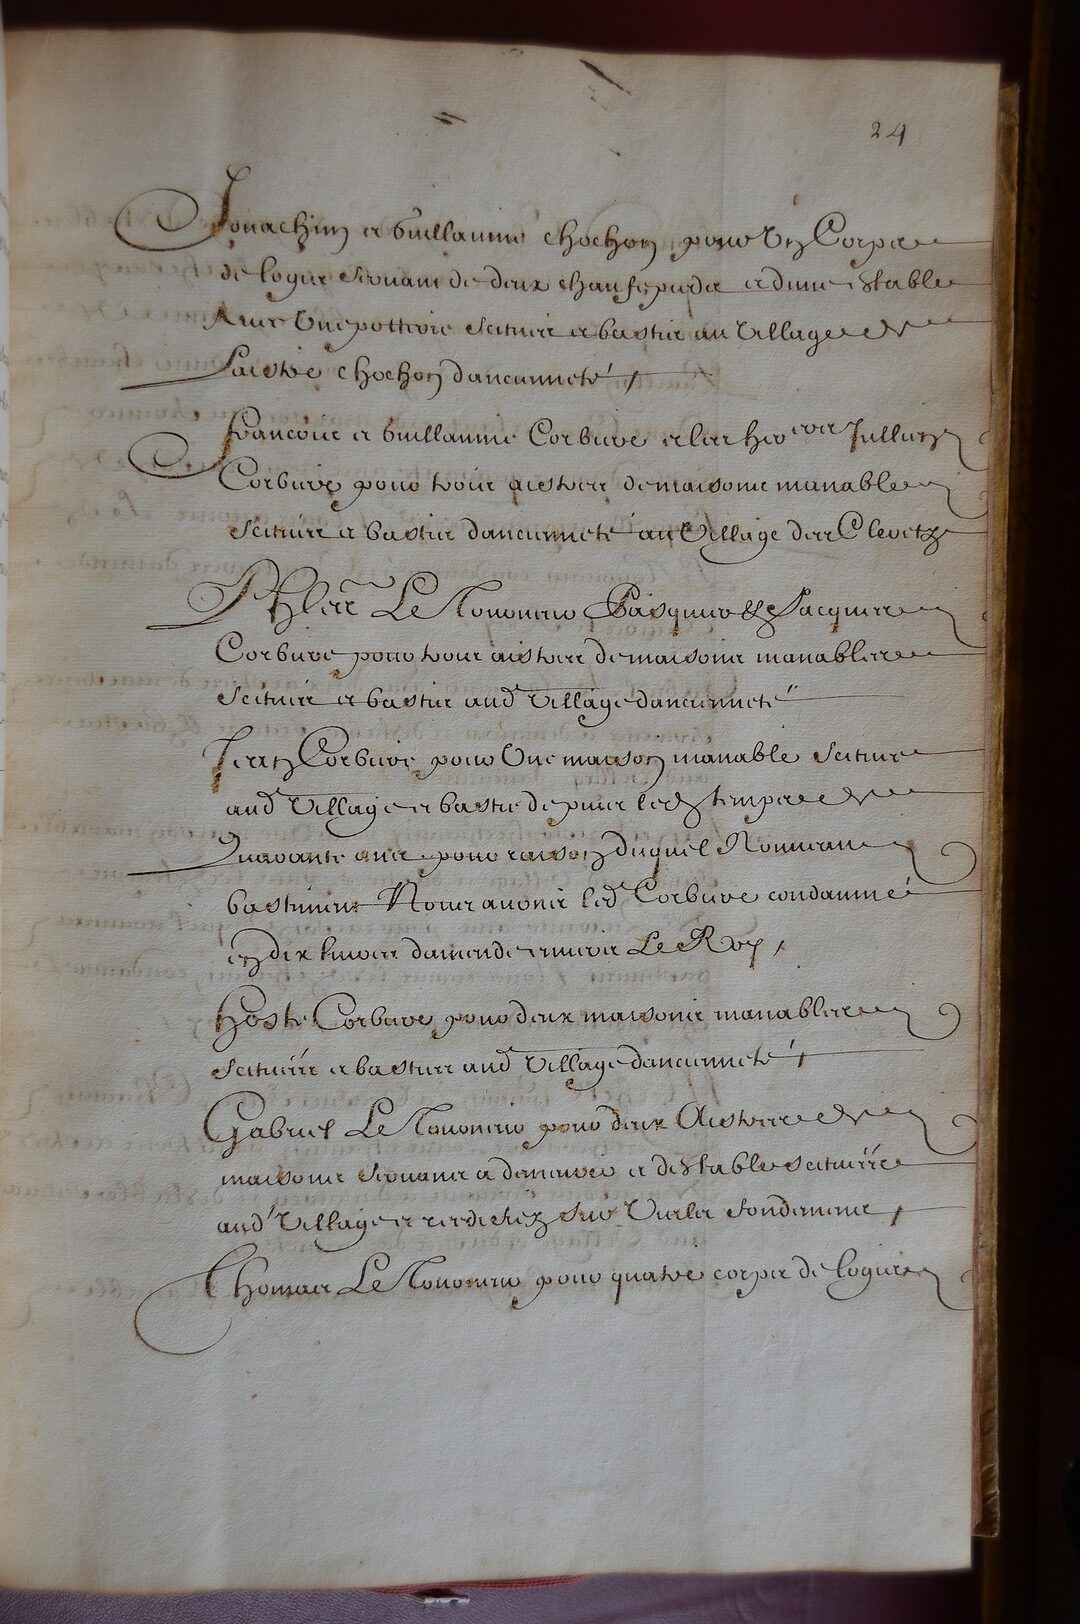 24
Jouachim et Guillaume Chochon pour Un Corps
de logis servant de deux chauffepieds et dune estable
Avec Une potterie scituez et bastie au Village
Laistre Chochon dancienneté /
francois et Guillaume Corbiere et les her ers Jullien
Corbiere pour trois aistres de maisons manables
scituez et bastis dancienneté au Village des Clevetz
Phles Le Tonnerre Pasquier & Jacques
Corbiere pour trois aistres de maisons manables
scituez et bastis aud Village dancienneté
Jean Corbiere pour Une maison manable scituée
aud Village et bastie depuis les temps de
Quarante ans pour raison duquel Nouveau
bastiment Nous avons led Corbiere condamné
en dix livres damende envers Le Roy /
Hoste Corbiere pour deux maisons manables
scituées et basties aud Village dancienneté /
Gabriel Le Tonnerre pour deux Aistres de
maisons servans a demeure et destable scituées
aud Village et reedifiez sur Vieilz fondemens /
Thomas Le Tonnerre pour quatre corps de logis